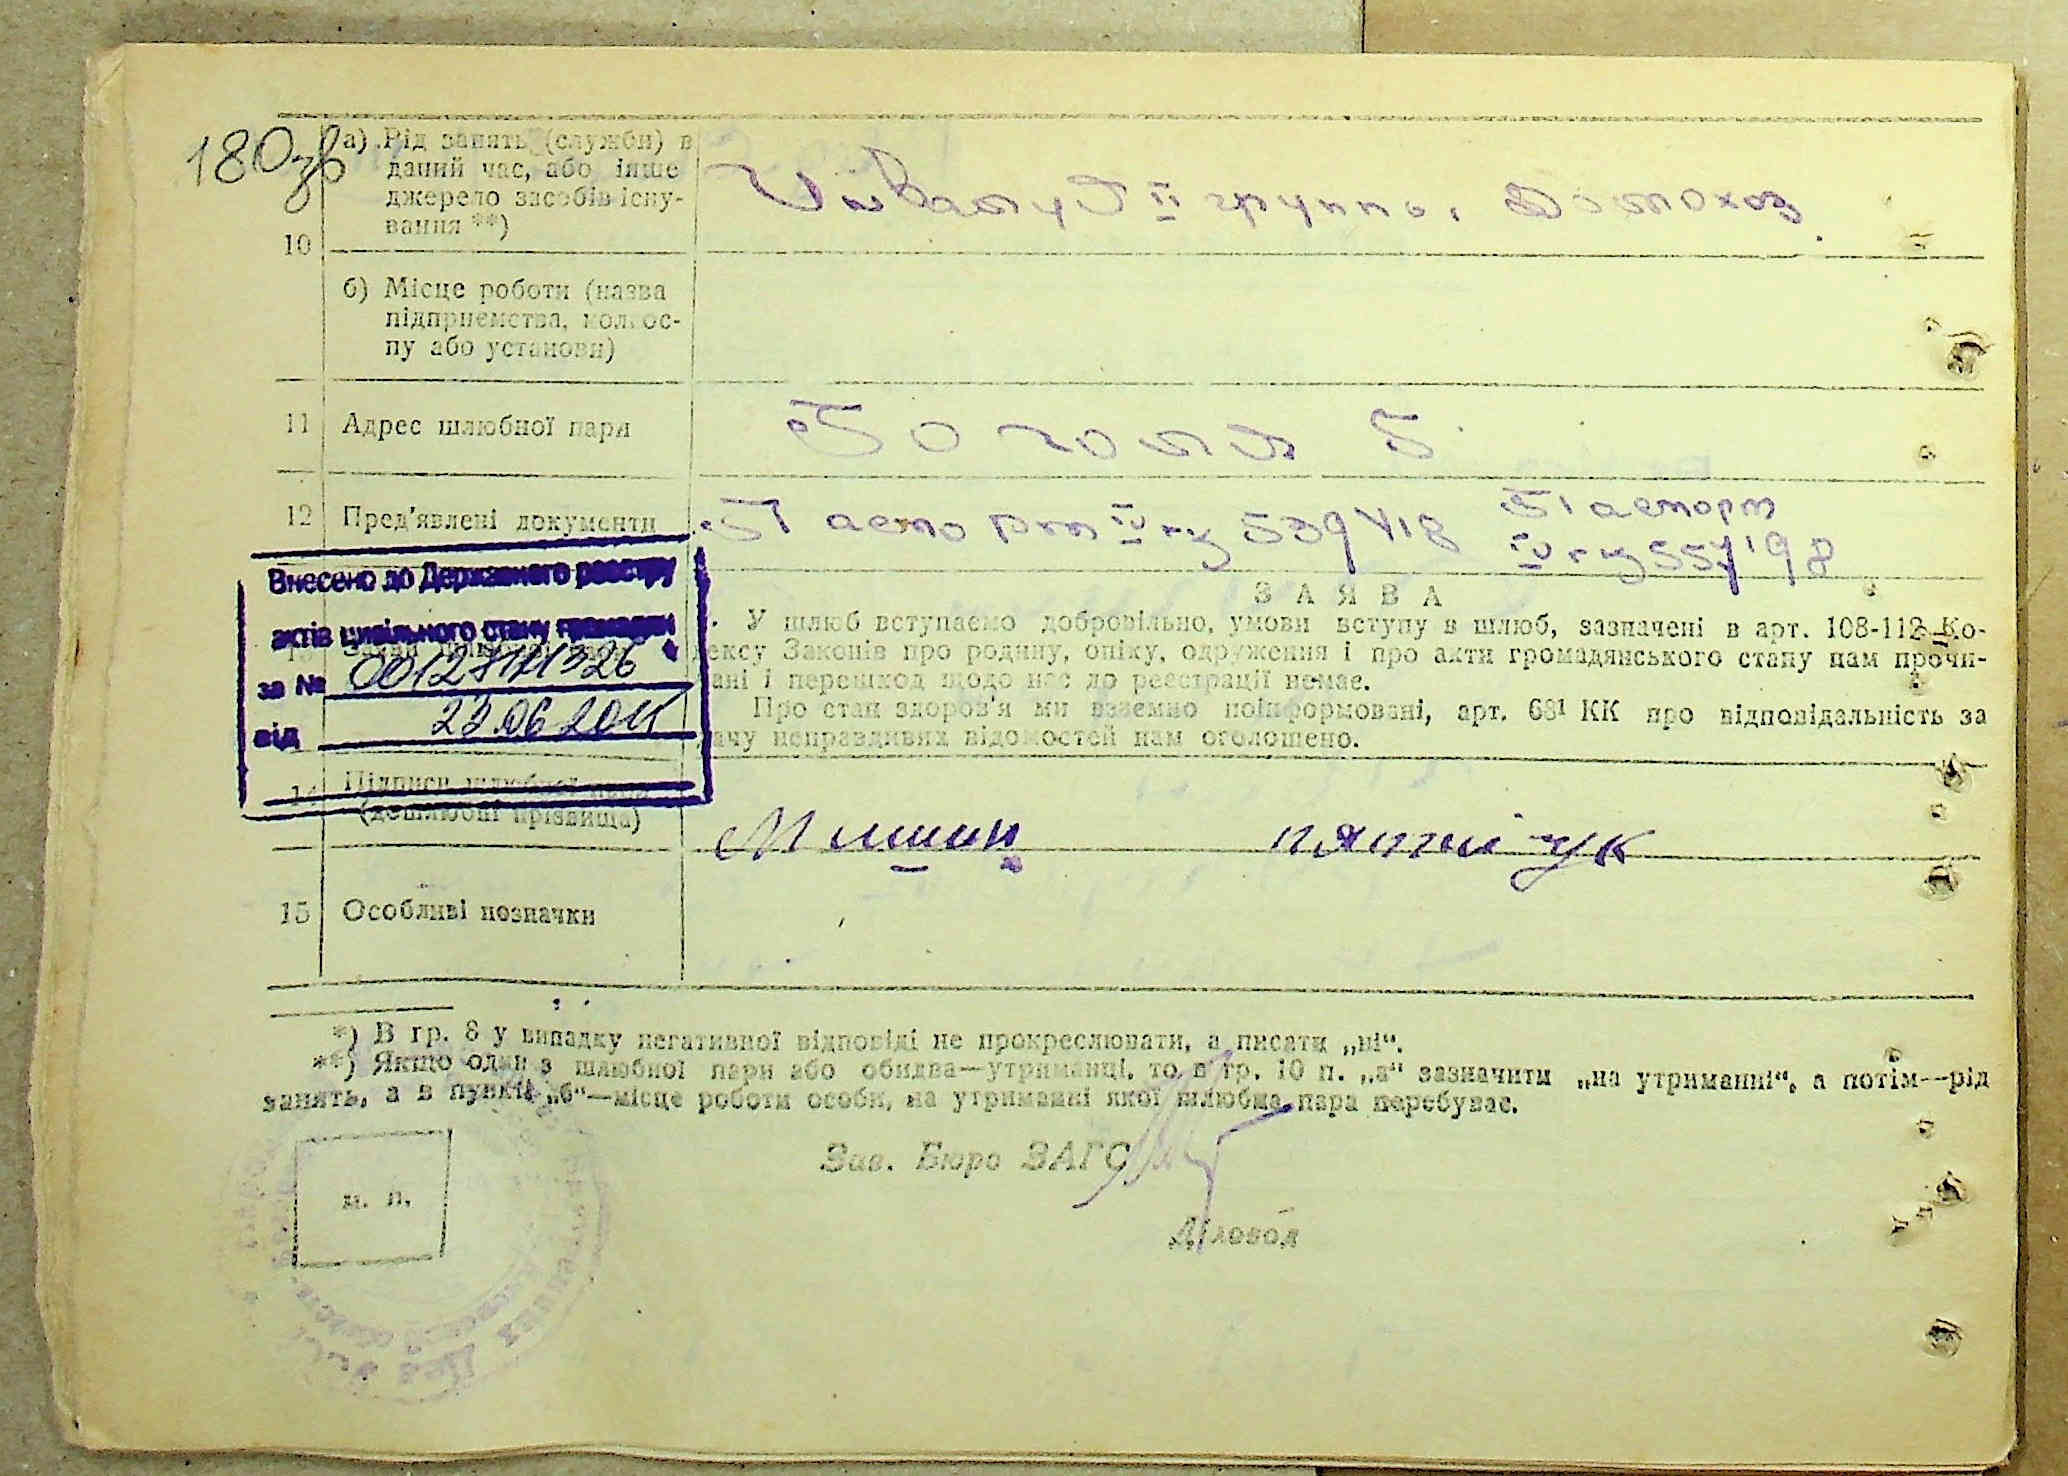 180зв
а) Рід занять (служби) в
даний час, або інше
джерело засобів існу-
вання **)
Инвалид II группы, домохоз
10
б) Місце роботи (назва
підприємства, колгос-
пу або установи)
11 Адрес шлюбної пари
12 Пред'явлені документи
Паспорт IV
Паспорт
IV
Внесено до Державного реєстру
актів цивільного стану громадян
за №
від 23.06.2011
ЗАЯВА
У шлюб вступаємо добровільно, умови вступу в шлюб, зазначені в арт. 108-112 Ко-
дексу Законів про родину, опіку, одруження і про акти громадянського стану нам прочи-
тані і перешкод щодо нас до реєстрації немає.
Про стан здоров'я ми взаємно поінформовані, арт. 68¹ КК про відповідальність за
дачу неправдивих відомостей нам оголошено.
14 Підписи шлюбної пари
(дошлюбні прізвища)
15 Особливі позначки
*) В гр. 8 у випадку негативної відповіді не прокреслювати, а писати „ні“.
**) Якщо один з шлюбної пари або обидва—утриманці, то в гр. 10 п. „а“ зазначити „на утриманні“, а потім—рід
занять, а в пункті „б“—місце роботи особи, на утриманні якої шлюбна пара перебуває.
Зав. Бюро ЗАГС
м. п.
Діловод